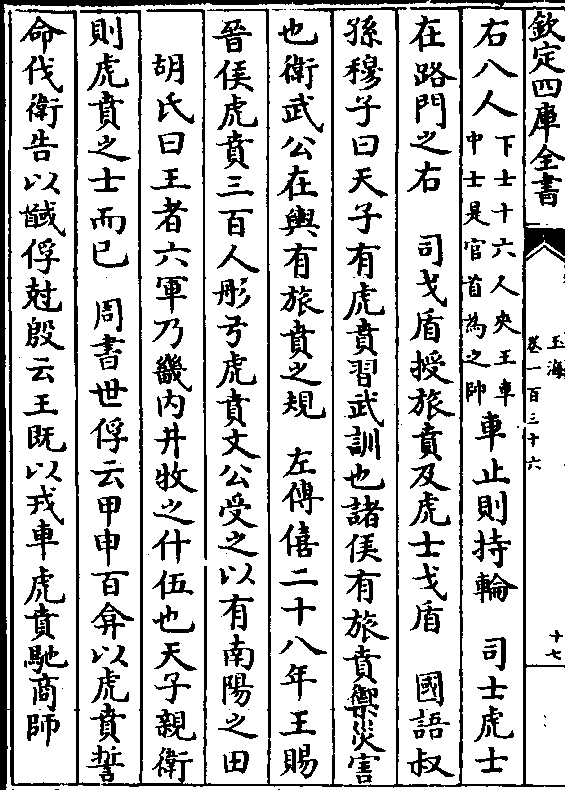 欽定四庫全書
玉海
卷一百三十六
十七
右八人下士十六人夾王車中士是官首為之帥車止則持輪　司士虎士
在路門之右　司戈盾授旅賁及虎士戈盾　國語叔
孫穆子曰天子有虎賁習武訓也諸侯有旅賁禦災害
也衛武公在輿有旅賁之規　左傳僖二十八年王賜
晉侯虎賁三百人彤弓虎賁文公受之以有南陽之田
胡氏曰王者六軍乃畿内井牧之什伍也天子親衛
則虎賁之士而已　周書世俘云甲申百弇以虎賁誓
命伐衛告以馘俘尅殷云王既以戎車虎賁馳商師